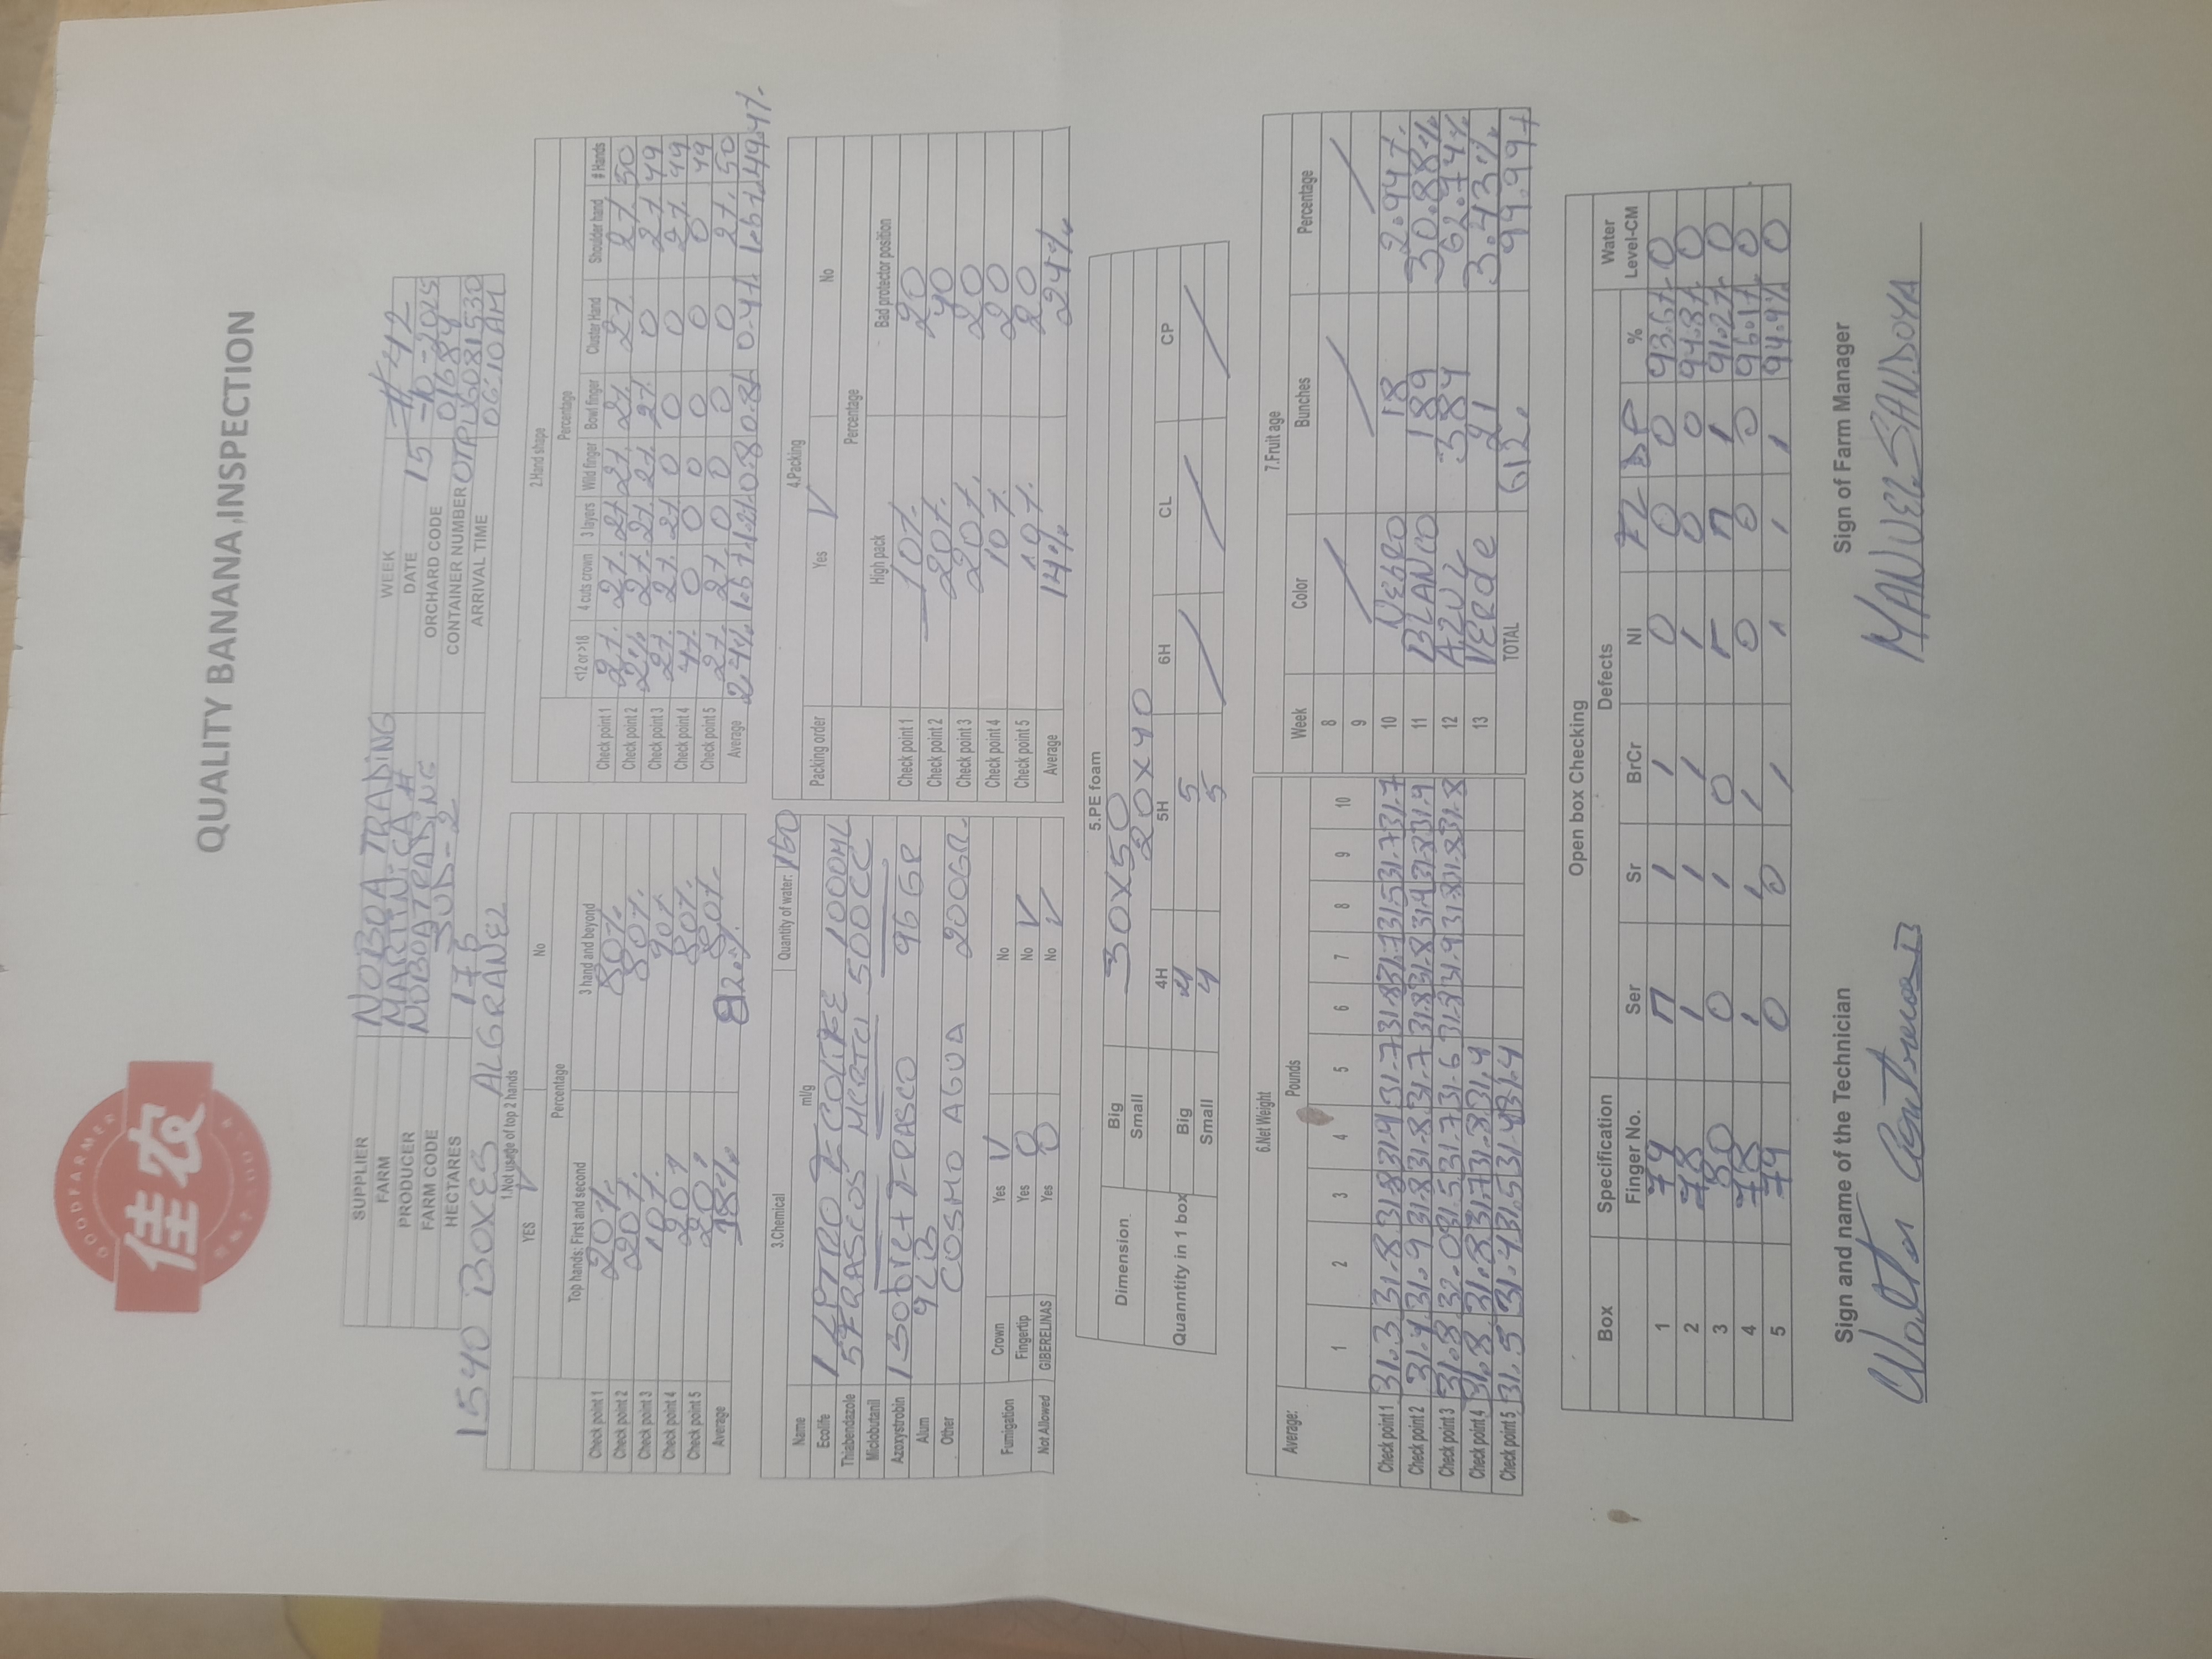 GOODFARMER
佳农
QUALITY BANANA INSPECTION
SUPPLIER NOBOA TRADING WEEK #42
FARM MARTINICA # DATE 15-10-2025
PRODUCER NOBOATRADING ORCHARD CODE 01684
FARM CODE SUD-2 CONTAINER NUMBER OTPU6081530
HECTARES 176 ARRIVAL TIME 06:10 AM
1540 BOXES ALGRANEL
1.Not usage of top 2 hands
YES V No
Percentage
Top hands: First and second 3 hand and beyond
Check point 1 20% 80%
Check point 2 20% 80%
Check point 3 10% 90%
Check point 4 20% 80%
Check point 5 20% 80%
Average 18% 82%
2.Hand shape
Percentage
<12 or >18 4 cuts crown 3 layers Wild finger Bowl finger Cluster Hand Shoulder hand # Hands
Check point 1 2% 2% 2% 2% 2% 2% 2% 50
Check point 2 2% 2% 2% 2% 2% 0 2% 49
Check point 3 2% 2% 2% 0 0 0 2% 49
Check point 4 4% 0 0 0 0 0 0 49
Check point 5 2% 2% 0 0 0 0 2% 50
Average 2.4% 1.6% 1.2% 0.8 0.8% 0.4% 1.6% 49.4%
3.Chemical Quantity of water: 160
Name ml/g
Ecolife 1 LITRO ECOLIFE 1000ML
Thiabendazole 5 FRASCOS MERTCI 500CC
Miclobutanil
Azoxystrobin 1 Sobre + FRASCO 96 GR
Alum 9LB
Other COSMO AGUA 200GR.
Fumigation Crown Yes V No
Fingertip Yes 0 No V
Not Allowed GIBERELINAS Yes 0 No V
4.Packing
Packing order Yes V No
Percentage
High pack Bad protector position
Check point 1 10% 20
Check point 2 20% 40
Check point 3 20% 20
Check point 4 10% 20
Check point 5 10% 20
Average 14% 24%
5.PE foam
Dimension Big 30X50
Small 20X40
4H 5H 6H CL CP
Quanntity in 1 box Big 4 5
Small 4 5
6.Net Weight
Average: Pounds
1 2 3 4 5 6 7 8 9 10
Check point 1 31.3 31.8 31.8 31.9 31.7 31.8 31.7 31.5 31.7 31.7
Check point 2 31.4 31.9 31.8 31.8 31.7 31.8 31.8 31.9 31.8 31.9
Check point 3 31.8 32.0 31.5 31.7 31.6 31.8 31.9 31.8 31.8 31.8
Check point 4 31.8 31.8 31.7 31.8 31.4
Check point 5 31.5 31.4 31.5 31.4 31.4
7.Fruit age
Week Color Bunches Percentage
8
9
10 NEGRO 18 2.94%
11 BLANCO 189 30.88%
12 AZUL 384 62.74%
13 VERde 21 3.43%
TOTAL 612. 99.99%
Open box Checking
Box Specification Defects Water
Finger No. Ser Sr BrCr NI FL DP % Level-CM
1 79 1 1 0 0 0 93.6% 0
2 78 1 1 1 1 0 0 94.8% 0
3 80 0 1 0 1 91.2% 0
4 78 1 1 1 0 0 0 96.1% 0
5 79 0 0 1 1 1 1 94.9% 0
Sign and name of the Technician Sign of Farm Manager
Walter Contreras MANUEL SANDOYA